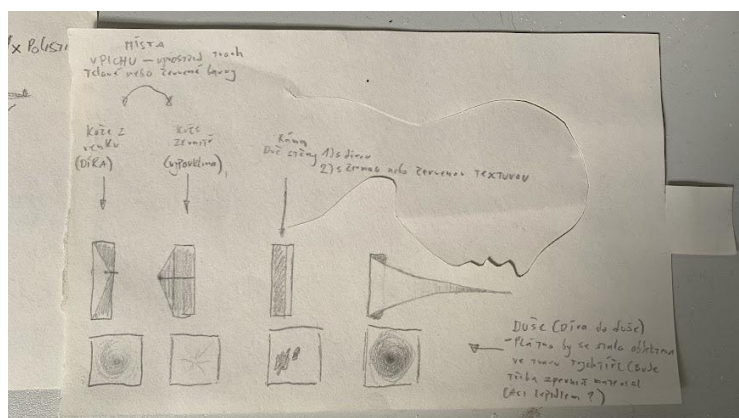 MÍSTA
VPICHU — uprostřed trochu
tělové nebo červené barvy
Kůže z
venku
(DÍRA)
Kůže
zevnitř
(vypouklina)
Rána
Dvě strany 1) s dírou
2) s černou nebo červenou TEXTUROU
DUŠE (Díra do duše)
- Plátno by se stalo objektem
ve tvaru trychtýře (bude
třeba zpevnit materiál
(Asi lepidlem?)